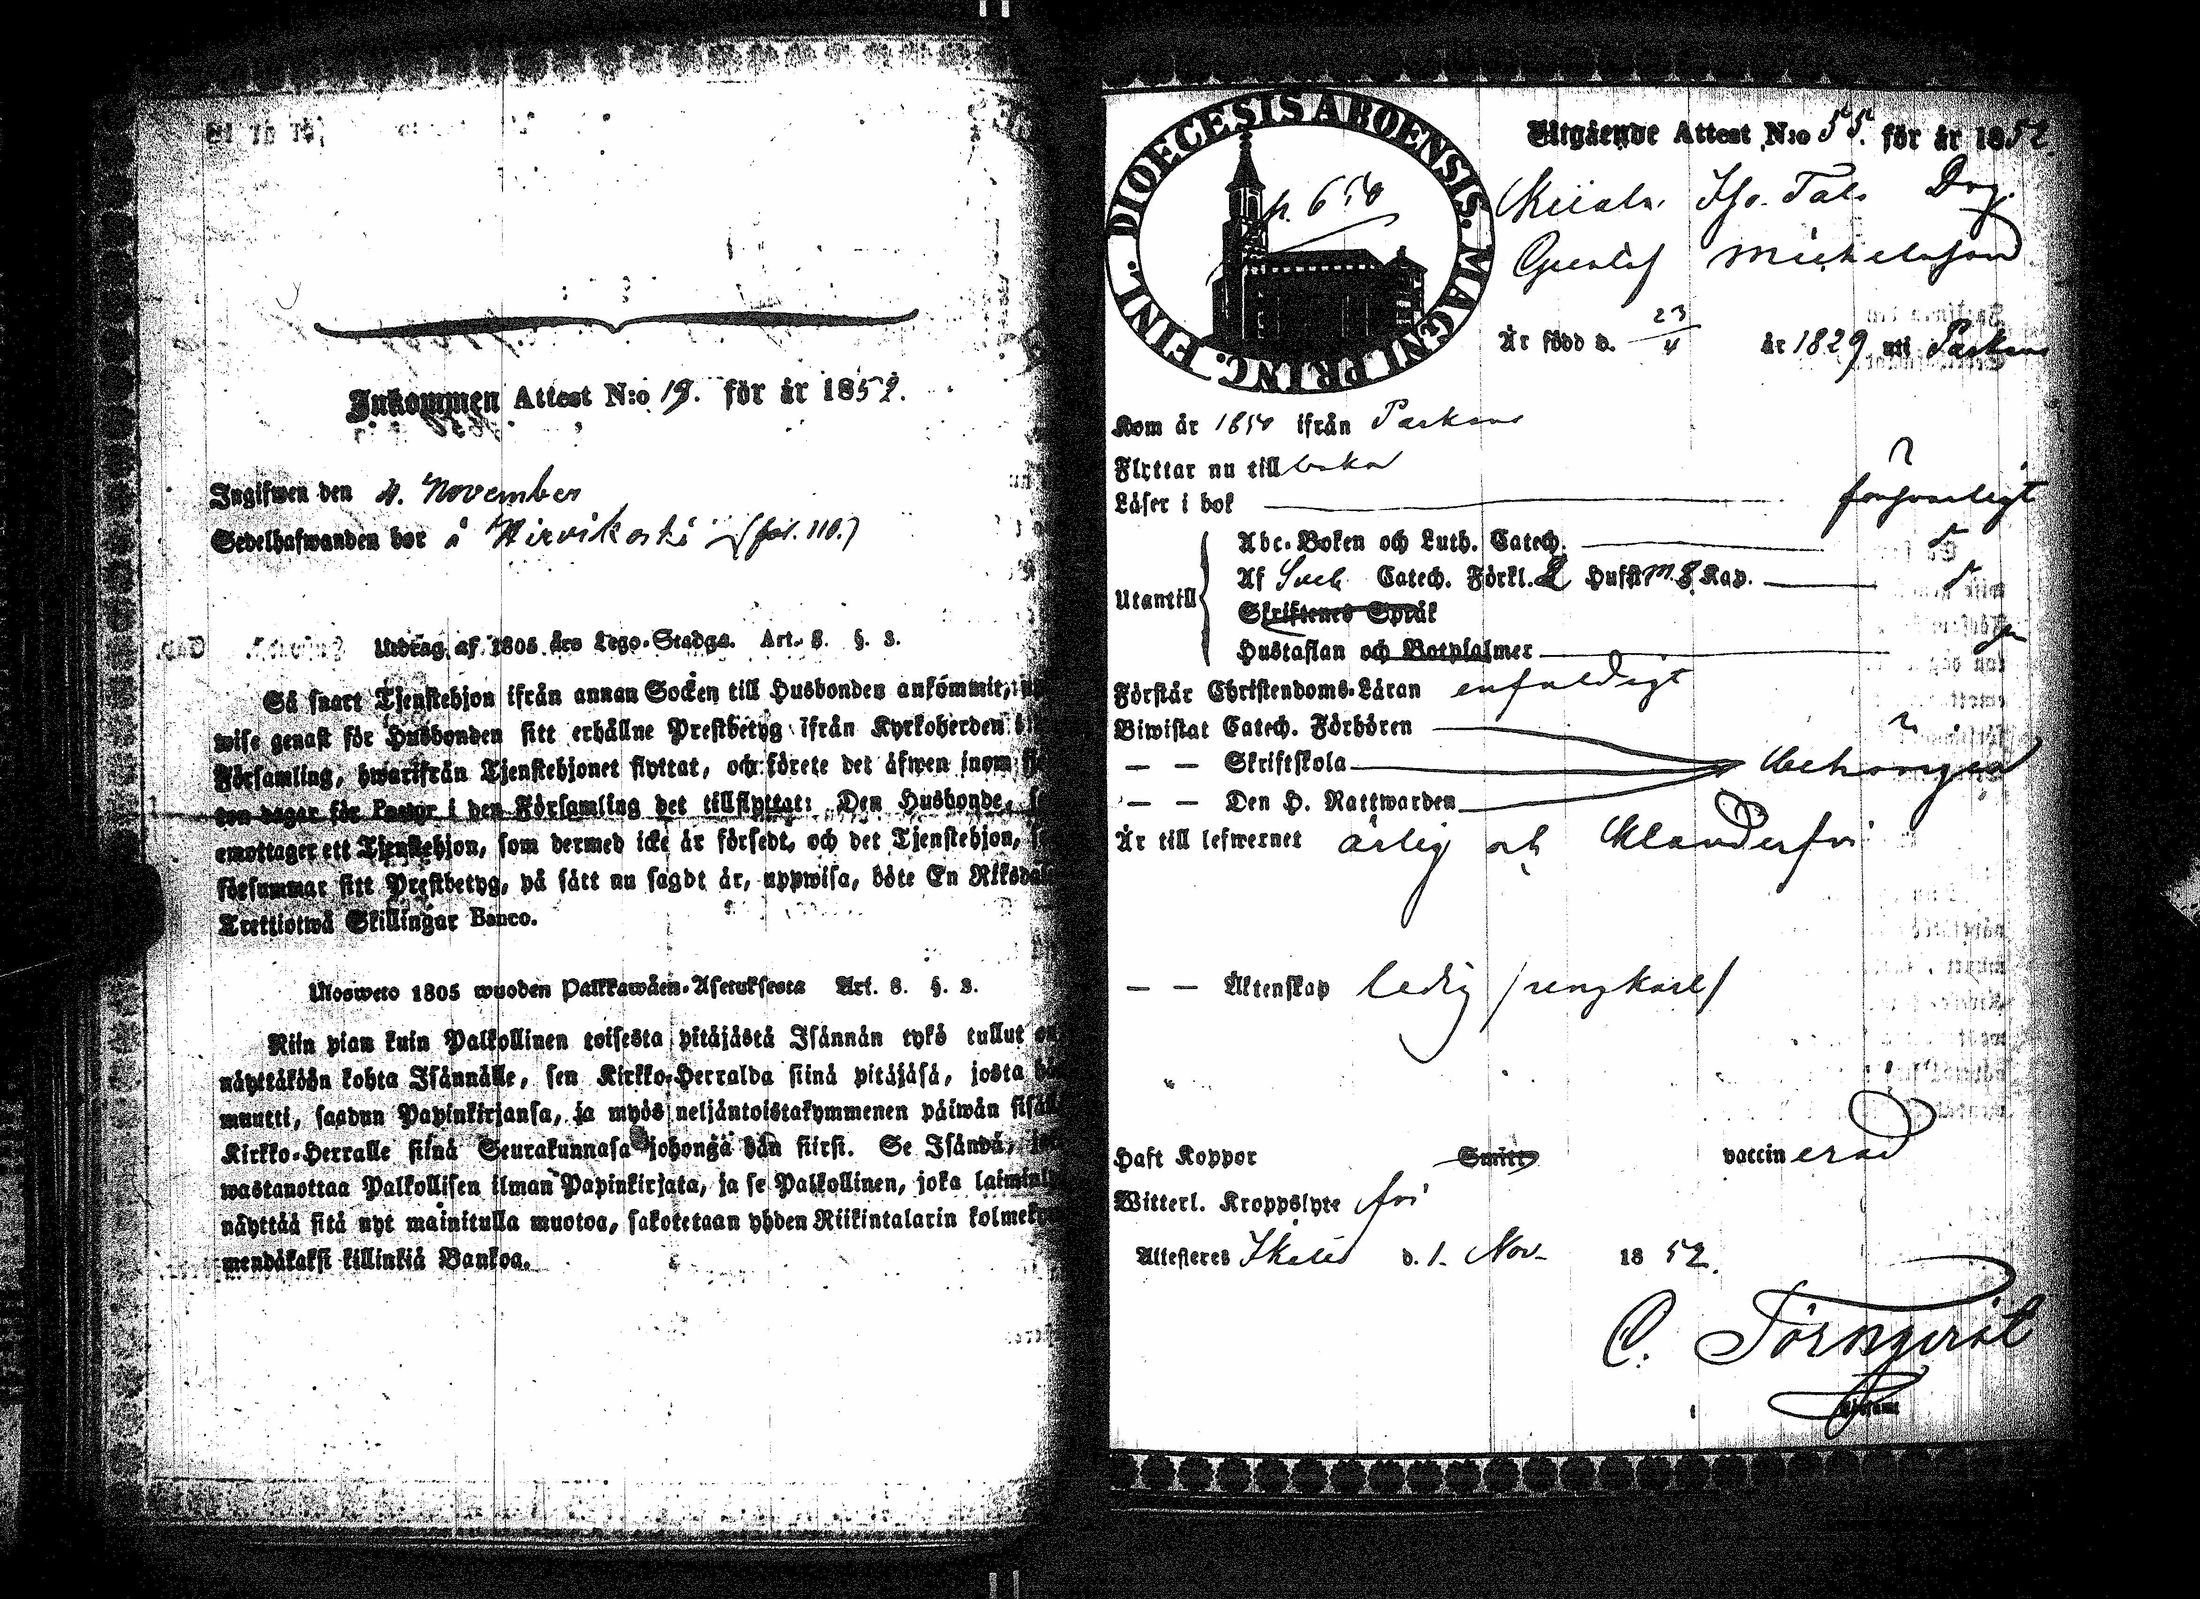 Inkommen Attest N:o 19. för år 1852.
Ingifwen den 4. November
Sedelhafwanden bor å Hirvikoski (fol. 110.)
Utdrag af 1805 års Lego-Stadga. Art. 8. §. 3.
Så snart Tjenstehjon ifrån annan Socken till Husbonden ankommit,
wise genast för Husbonden sitt erhållne Prestbetyg ifrån Kyrkoherden
Församling, hwarifrån Tjenstehjonet flyttat, och förete det äfwen inom
ton dagar för Pastor i den Församling det tillflyttat: Den Husbonde,
emottager ett Tjenstehjon, som dermed icke är försedt, och det Tjenstehjon,
försummar sitt Prestbetyg, på sätt nu sagdt är, uppwisa, böte En Riksdaler
Trettiotwå Skillingar Banco.
Ulosweto 1805 wuoden Palkkawäen-Asetuksesta Art. 8. §. 3.
Niin pian kuin Palkollinen toisesta pitäjästä Isännän tykö tullut on
näyttäköön kohta Isännälle, sen Kirkko-Herralda siinä pitäjäsä, josta hän
muutti, saadun Papinkirjansa, ja myös neljäntoistakymmenen päiwän sisällä
Kirkko-Herralle siinä Seurakunnasa johonga hän siirsi. Se Isändä,
wastanottaa Palkollisen ilman Papinkirjata, ja se Palkollinen, joka laiminlyö
näyttää sitä nyt mainitulla muotoa, sakotetaan yhden Riikintalarin kolmekym-
mendäkaksi killinkiä Bankoa.
DIOECESIS ABOENSIS. MAGNI PRINC. FINL.
p. 650
Utgående Attest N:o 55. för år 1852.
Iso. Talo Drg.
Gustaf Michelsson
Är född d. 23/4 år 1829 uti Parkano
Kom år 1850 ifrån Parkano
Flyttar nu tillbaka
Läser i bok försvarligt
Utantill
Abc-Boken och Luth. Catech.
Af Sveb. Catech. Förkl. Hufst Kap.
Skriftenes Språk
Hustaflan och Botpsalmer
Förstår Christendoms-Läran enfaldigt
Biwistat Catech. Förhören
— — Skriftskola behörigen
— — Den H. Nattwarden
Är till lefwernet ärlig och klanderfri
— — Äktenskap ledig /rengkarl/
Haft Koppor Smitt vaccinerad
Witterl. Kroppslyte fri
Attesteres Ikalis d. 1. Nov. 1852.
C. Törnqvist